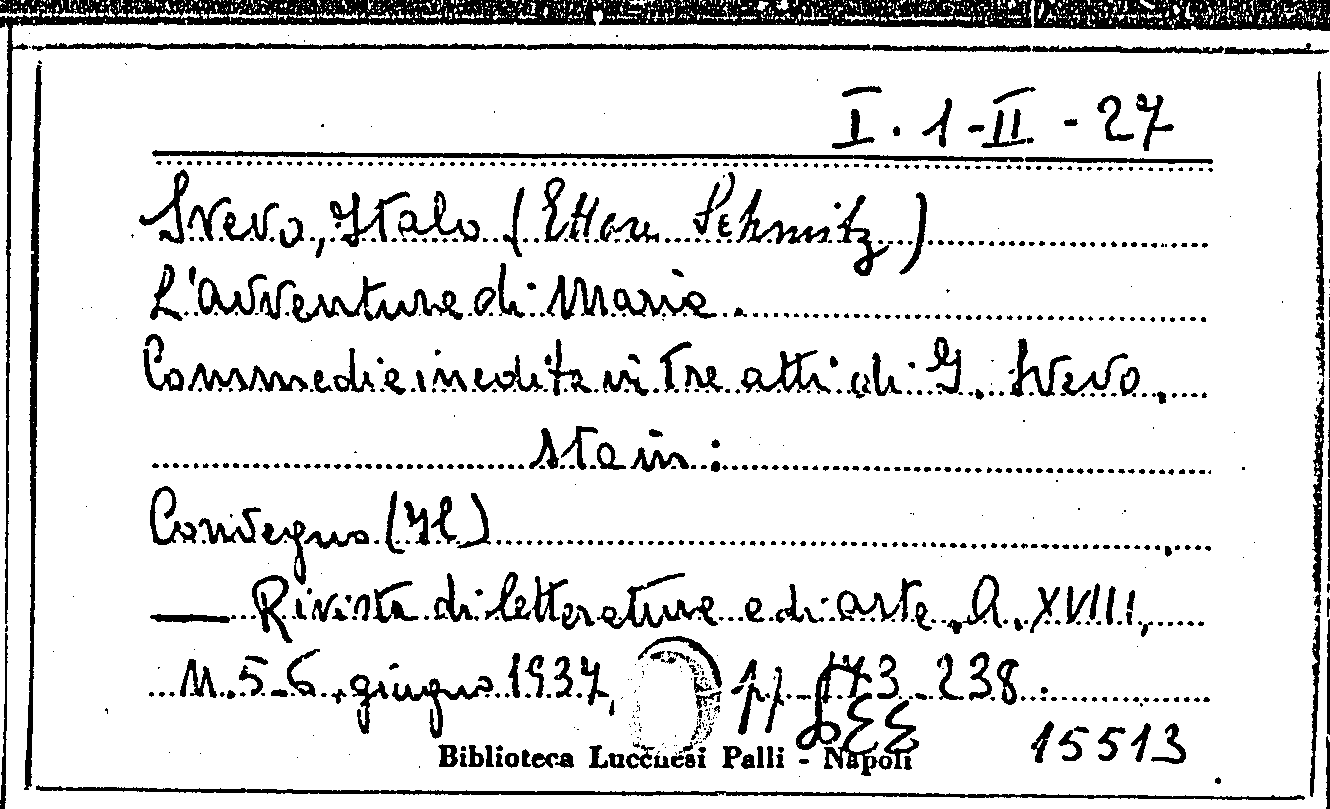 I. 1-II - 27
Svevo, Italo (Ettore Schmitz)
L'avventura di Maria.
Commedia inedita in tre atti di I. Svevo.
sta in:
Convegno (Il)
— Rivista di letteratura e di arte, A. XVIII,
N. 5-6, giugno 1937, pp 173-238.
15513
Biblioteca Lucchesi Palli - Napoli